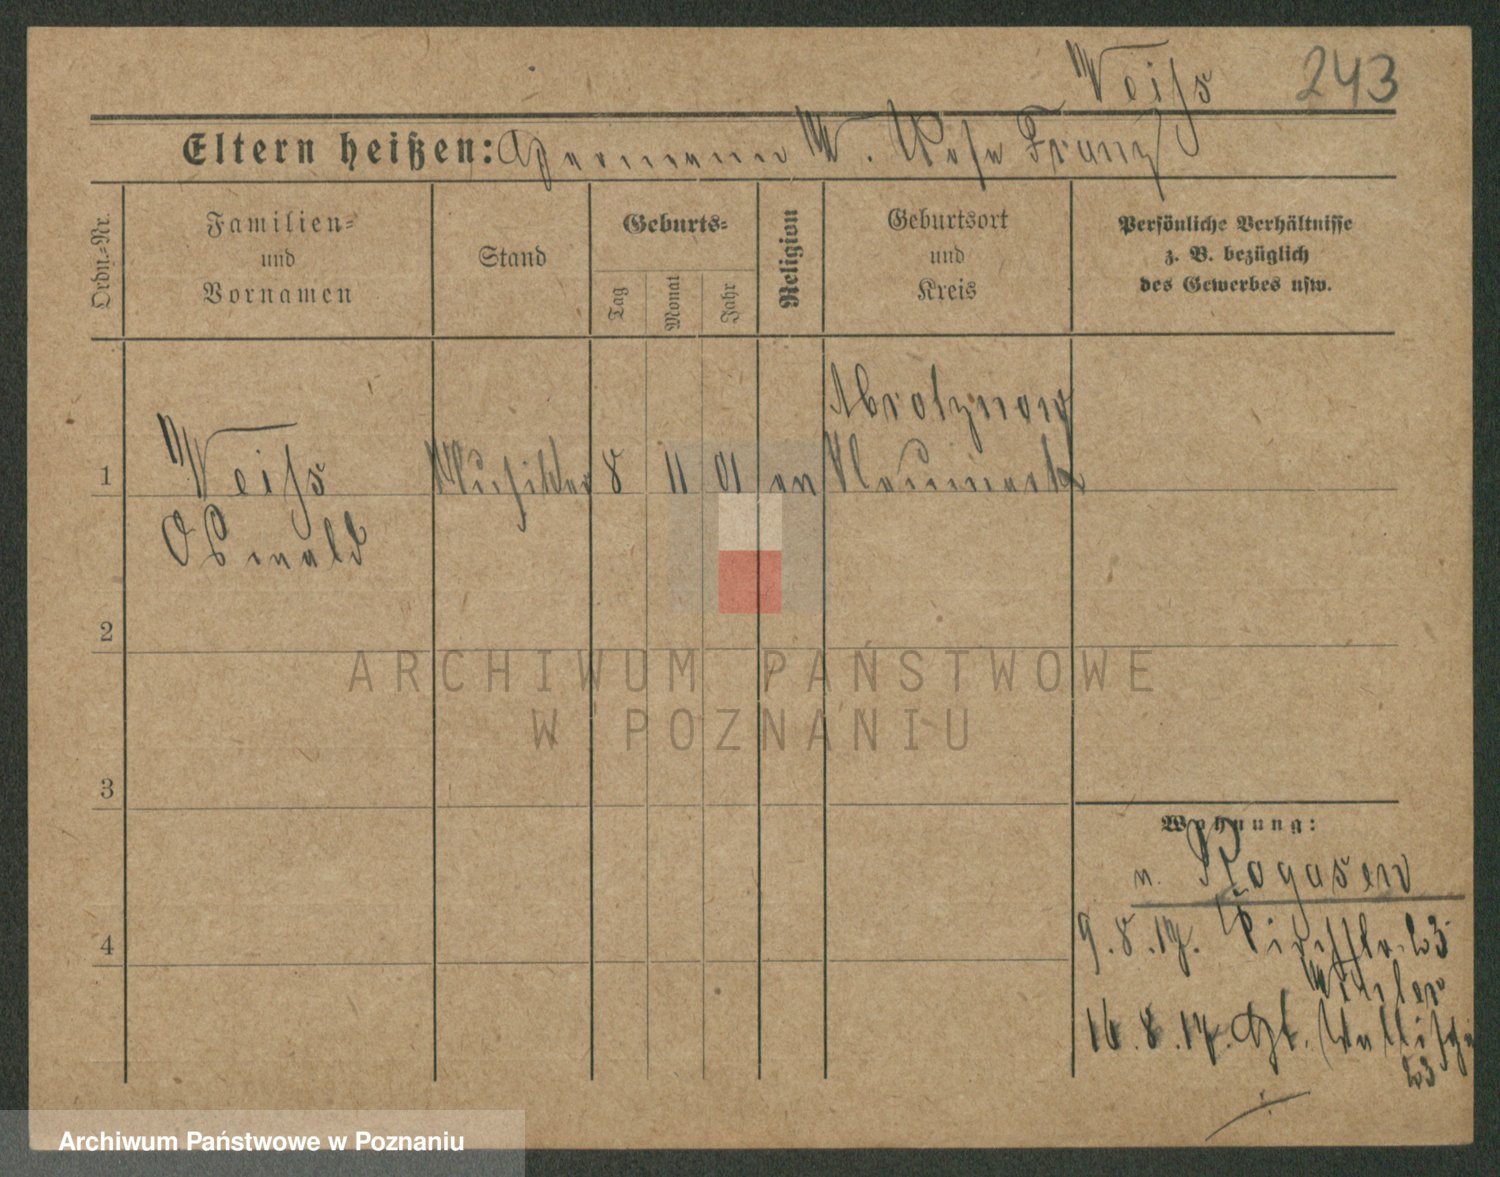 Weiß 243
Eltern heißen: Hermann W. Rosa Franz
Ordn.-Nr.
Familien-
und
Vornamen
Stand
Geburts-
Tag
Monat
Jahr
Religion
Geburtsort
und
Kreis
Persönliche Verhältnisse
z. B. bezüglich
des Gewerbes usw.
1
Weiß
Oswald
Musiker
8
11
01
ev
2
ARCHIWUM PAŃSTWOWE
W POZNANIU
3
4
Wohnung:
n. Rogasen
9.8.17.
16.8.17.
Archiwum Państwowe w Poznaniu